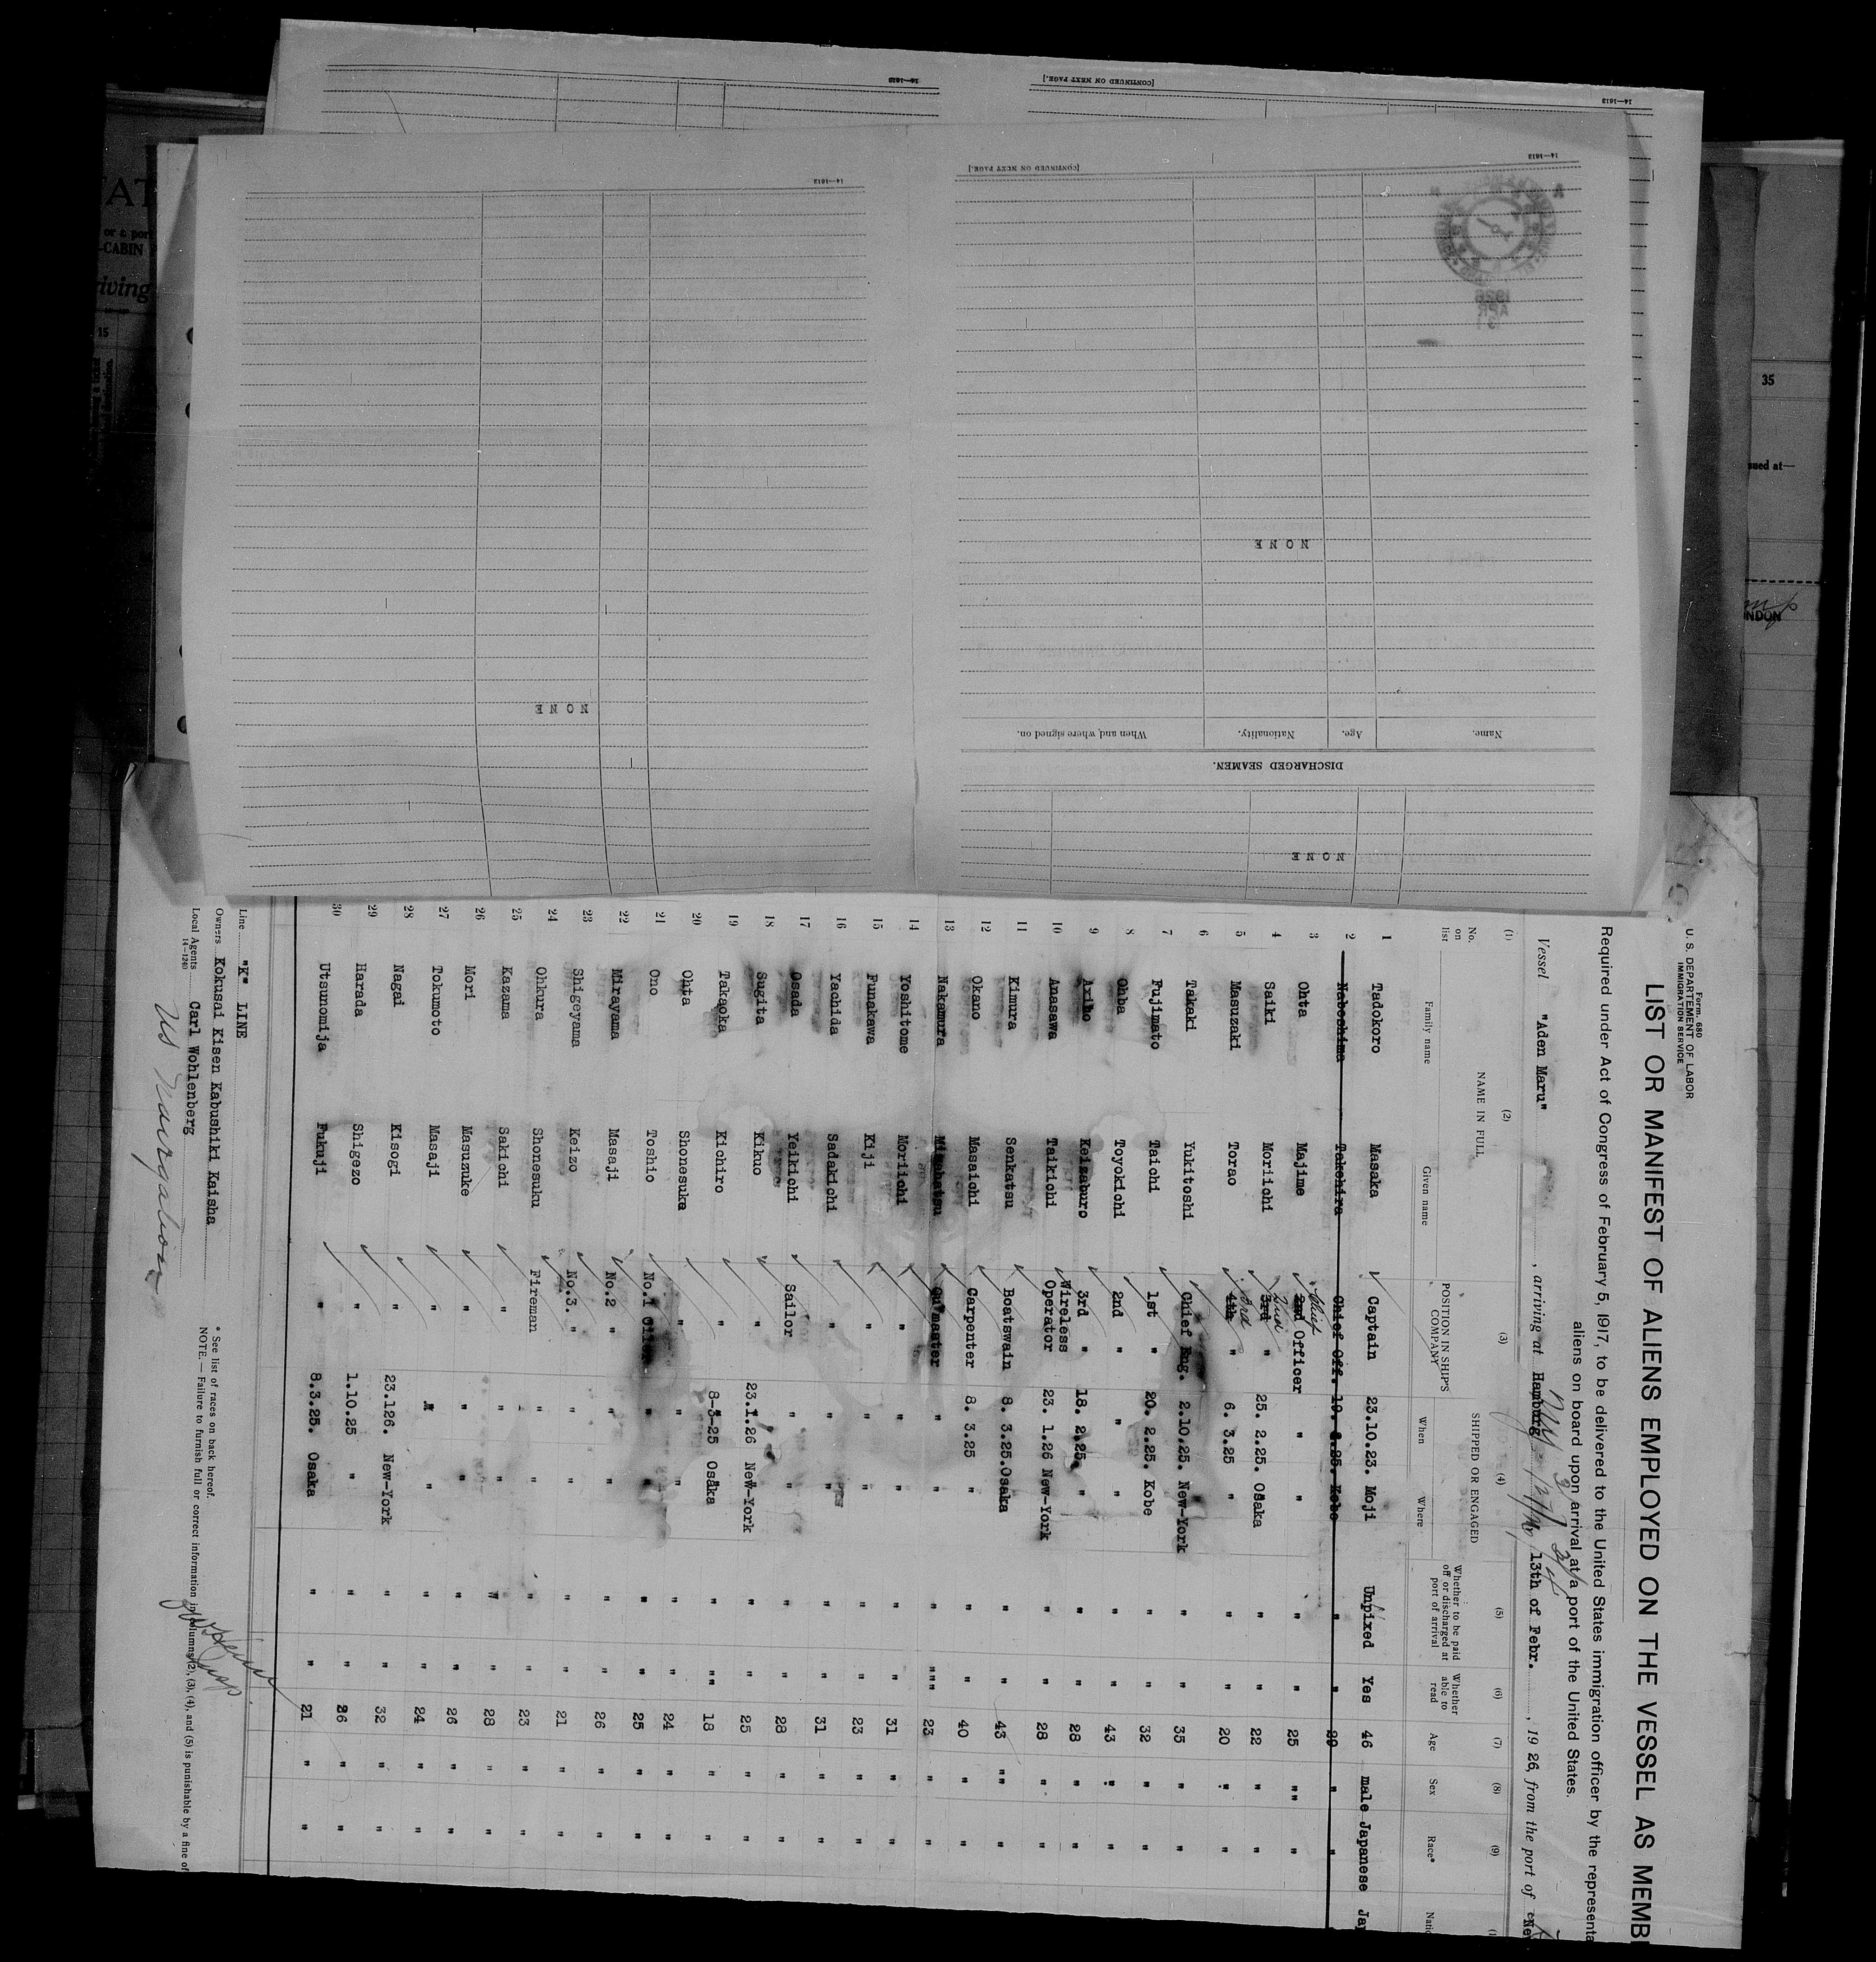 Form. 680
U. S. DEPARTEMENT OF LABOR
IMMIGRATION SERVICE
LIST OR MANIFEST OF ALIENS EMPLOYED ON THE VESSEL AS MEMB
Required under Act of Congress of February 5, 1917, to be delivered to the United States immigration officer by the representa
aliens on board upon arrival at a port of the United States.
Vessel "Aden Maru" , arriving at Hamburg 13th of Febr. , 1926, from the port of
(1) (2) (3) (4) (5) (6) (7) (8) (9)
No. on list NAME IN FULL POSITION IN SHIP'S COMPANY SHIPPED OR ENGAGED Whether to be paid off or discharged at port of arrival Whether able to read Age Sex Race*
Family name Given name When Where
1 Tadokoro Masaka Captain 23.10.23. Moji Unpixed Yes 46 male Japanese
2 Naboshima Takehira Chief Off. 19. 2.25. Kobe " " 29 " "
3 Ohta Majime 2nd Chief Officer " " " " 25 "" "
4 Saiki Moriichi 3rd 2nd " 25. 2.25. Osaka " " 22 " "
5 Masuzaki Torao 4th 3rd " 6. 3.25 " " " 20 " "
6 Takaki Yukitoshi Chief Eng. 2.10.25. New-York " " 35 " "
7 Fujimato Taichi 1st " 20. 2.25. Kobe " " 32 " "
8 Ohba Toyokichi 2nd " " " " " 43 " "
9 Axiho Keizaburo 3rd " 18. 2.25. " " " 28 " "
10 Anasawa Taikichi Wireless Operator 23. 1.26 New-York " " 28 " "
11 Kimura Senkatsu Boatswain 8. 3.25. Osaka " " 43 "" "
12 Okano Masaichi Carpenter 8. 3.25 " " " 40 " "
13 Nakamura Qu'master " " " """ 23 " "
14 Yoshitome Moriichi " " " " " 31 " "
15 Funakawa Kiji " " " " " 23 " "
16 Yachida Sadakichi " " " " " 31 " "
17 Osada Yeikichi Sailor " " " " 28 " "
18 Sugita Kikuo " 23.1.26 New-York " " 25 " "
19 Takaoka Kichiro " 8-3-25 Osaka " "" 18 " "
20 Ohta Shonesuke " " " " " 24 " "
21 Ono Toshio No.1 Oiler " " " " 25 " "
22 Mirayama Masaji No.2 " " " " " 26 " "
23 Shigeyama Keizo No.3. " " " " " 21 " "
24 Ohhura Shonesuku Fireman " " " " 23 " "
25 Kazama Sakichi " " " " " 28 " "
26 Mori Masuzuke " " " " " 26 " "
27 Tokumoto Masaji " " " " " 24 " "
28 Nagai Kisogi " 23.126. New-York " " 32 " "
29 Harada Shigezo " 1.10.25 " " " 26 " "
30 Utsunomija Fukuji " 8.3.25. Osaka " " 21 " "
Line "K" LINE
Owners Kokusai Kisen Kabushiki Kaisha
Local Agents Carl Wohlenberg
14—1240
US Navigation
* See list of races on back hereof.
NOTE. — Failure to furnish full or correct information in columns (2), (3), (4), and (5) is punishable by a fine of
NONE
DISCHARGED SEAMEN.
Name. Age. Nationality. When and where signed on.
NONE
NONE
1926
APR
[CONTINUED ON NEXT PAGE.]
14—1613
14—1613
[CONTINUED ON NEXT PAGE.]
14—1613
14—1613
or a por
-CABIN
riving
15
35
sued at—
NDON